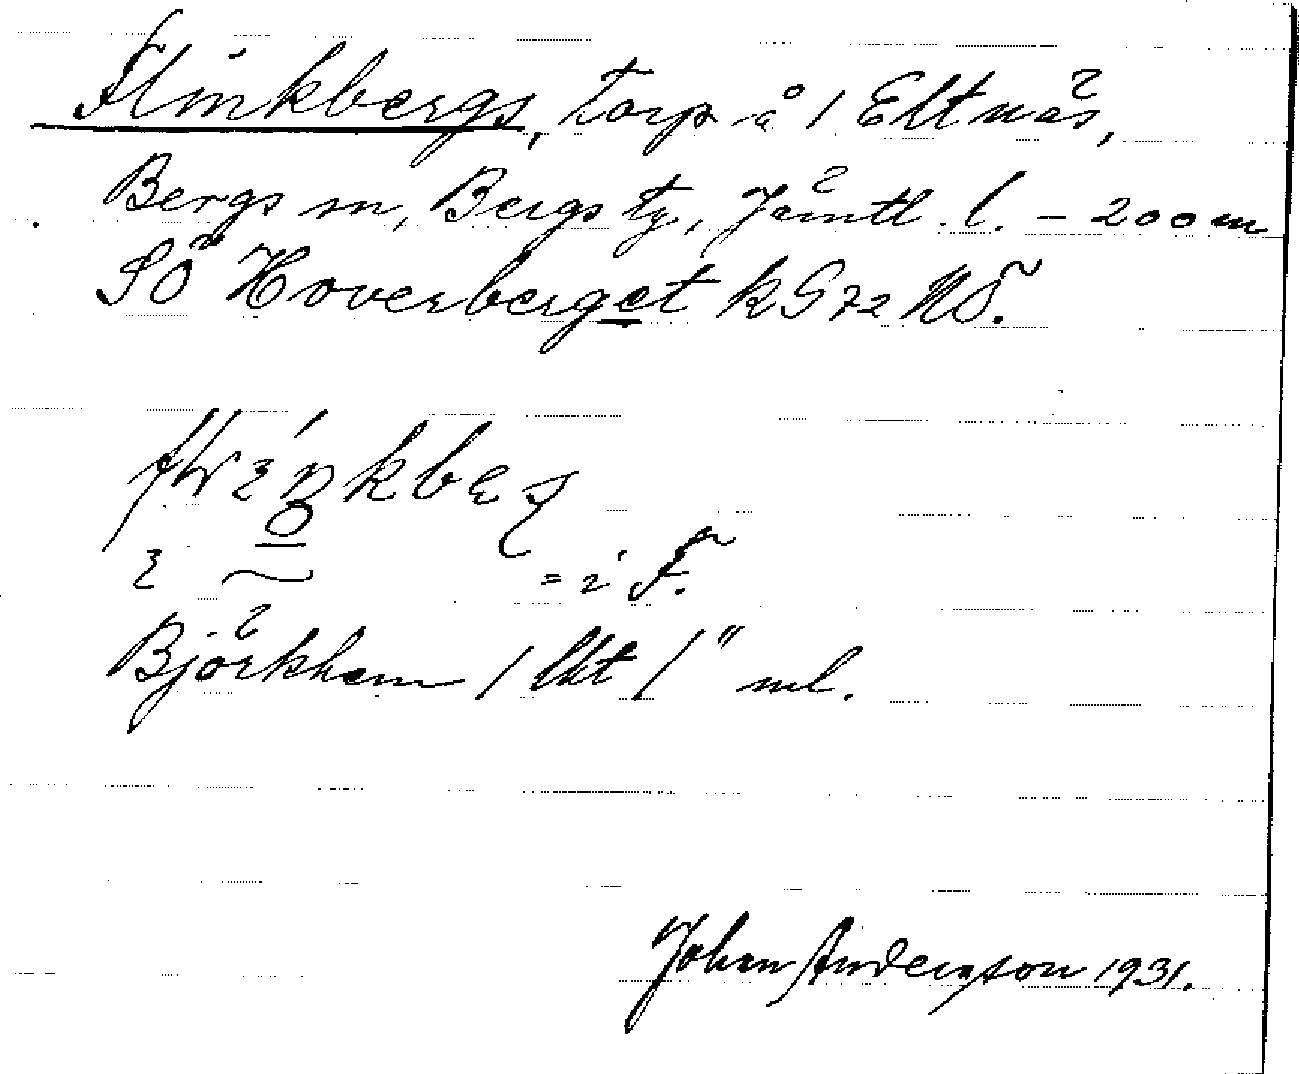 Flinkbergs, torp å 1 Eltnäs,
Bergs sn, Bergs tg, Jämtl. l. – 200 m
SÖ Hoverberget k G 72 NÖ.
= i F.
Björkhem / lht / " ml.
Johan Anderzson 1931.